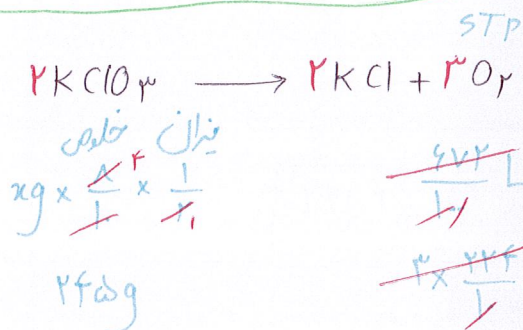 STP
۲KClO۳ → ۲KCl + ۳O۲
میزان خلوص
xg × ۸/۱۰ ۴ × ۱/۲ ۱ ۶۷۲/۱۰ L
۲۴۵g ۳ × ۲۲۴/۱۰